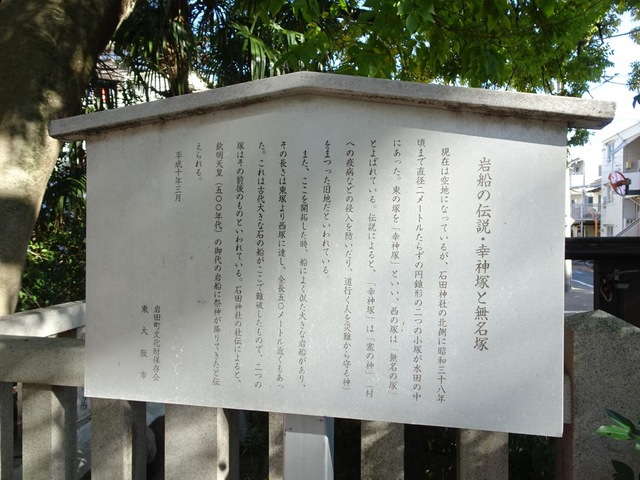 岩船の伝説・幸神塚と無名塚
現在は空地になっているが、石田神社の北側に昭和三十八年
頃まで直径二メートルたらずの円錐形の二つの小塚が水田の中
にあった。東の塚を「幸神塚」といい、西の塚は「無名の塚」
とよばれている。伝説によると、「幸神塚」は「塞の神」（村
への疫病などの侵入を防いだり、道行く人を災難から守る神）
をまつった旧地だといわれている
また、ここを開拓した時、船によく似た大きな岩船があり、
その長さは東塚より西塚に達し、全長五〇メートル近くもあっ
た。これは古代大きな石の船がここで難破したもので、二つの
塚はその前後のものといわれている。石田神社の社伝によると、
欽明天皇（五〇〇年代）の御代の岩船に祭神が降りてきたと伝
えられる。
平成十年三月
岩田町文化財保存会
東大阪市